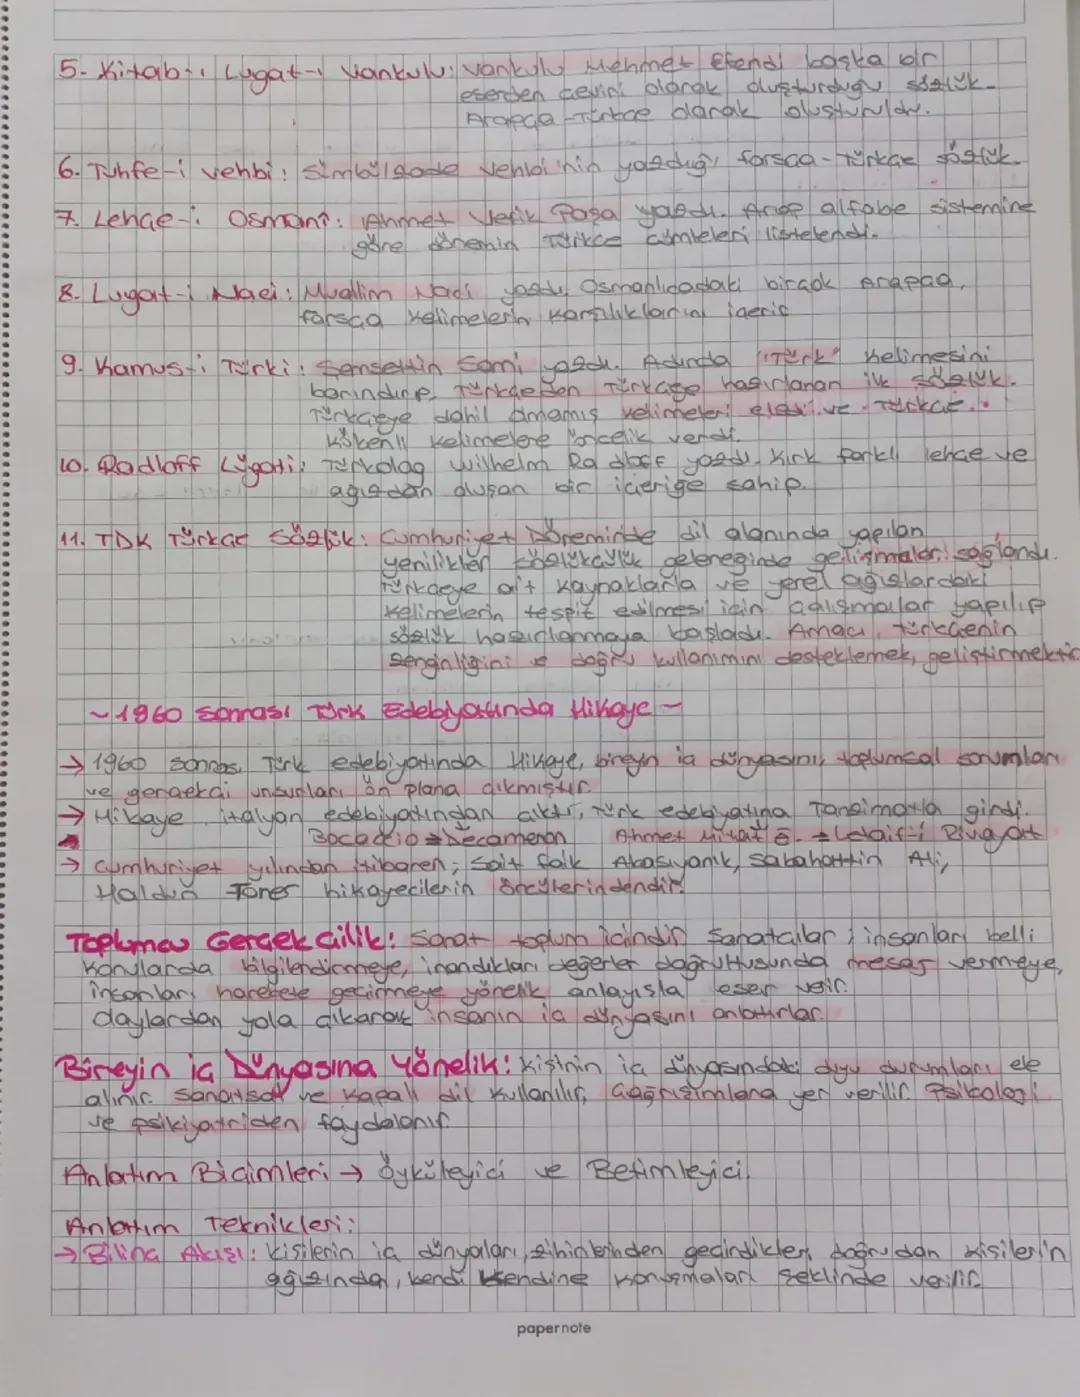 5- Kitab-ı Lugat-ı Vankulu: Vankulu Mehmet Efendi başka bir
eserden çeviri olarak oluşturduğu sözlük.
Arapça-Türkçe olarak oluşturuldu.
6. Tuhfe-i Vehbi: Sümbülzade Vehbi'nin yazdığı farsça-Türkçe sözlük.
7. Lehçe-i Osmani: Ahmet Vefik Paşa yazdı. Arap alfabe sistemine
göre dönemin Türkçe cümleleri listelendi.
8. Lugat-i Naci: Muallim Naci yazdı, Osmanlıcadaki birçok Arapça,
farsça kelimelerin karşılıklarını içerir
9. Kamus-i Türki: Şemsettin Sami yazdı. Adında "Türk" kelimesini
barındırır, Türkçeden Türkçeye hazırlanan ilk sözlük.
Türkçeye dahil olmamış kelimeleri eledi ve Türkçe
kökenli kelimelere öncelik verdi.
10. Radloff Lügati: Türkolog Wilhelm Radloff yazdı. Kırk farklı lehçe ve
ağızdan oluşan bir içeriğe sahip.
11. TDK Türkçe Sözlük: Cumhuriyet Döneminde dil alanında yapılan
yenilikler sözlükçülük geleneğinde gelişmeleri sağlandı.
Türkçeye ait kaynaklarla ve yerel ağızlardaki
kelimelerin tespit edilmesi için çalışmalar yapılıp
sözlük hazırlanmaya başladı. Amacı, türkçenin
zenginliğini ve doğru kullanımını desteklemek, geliştirmektir
~1960 Sonrası Türk Edebiyatında Hikaye~
→ 1960 sonrası Türk edebiyatında Hikaye, bireyin iç dünyasını, toplumsal sorunları
ve gerçekçi unsurları ön plana çıkmıştır.
→ Hikaye italyan edebiyatından çıktı, Türk edebiyatına Tanzimatla girdi.
Bocaccio → Decameron Ahmet Mithat E. → Letaif-i Rivayat
→ Cumhuriyet yılından itibaren; Sait Faik Abasıyanık, Sabahattin Ali,
Haldun Taner hikayecilerin öncülerindendir.
Toplumcu Gerçekçilik: Sanat toplum içindir Sanatçılar; insanları belli
konularda bilgilendirmeye, inandıkları değerler doğrultusunda mesaj vermeye,
insanları harekete geçirmeye yönelik anlayışla eser verir.
Olaylardan yola çıkarak insanın iç dünyasını anlatırlar.
Bireyin iç Dünyasına Yönelik: Kişinin iç dünyasındaki duyu durumları ele
alınır. Sanatsal ve kapalı dil kullanılır, Çağrışımlara yer verilir. Psikoloji
ve psikiyatriden faydalanır.
Anlatım Biçimleri → Öyküleyici ve Betimleyici.
Anlatım Teknikleri:
→ Bilinç Akışı: Kişilerin iç dünyaları, zihinlerinden geçirdikleri doğrudan kişilerin
ağzından, kendi kendine konuşmaları şeklinde verilir.
papernote